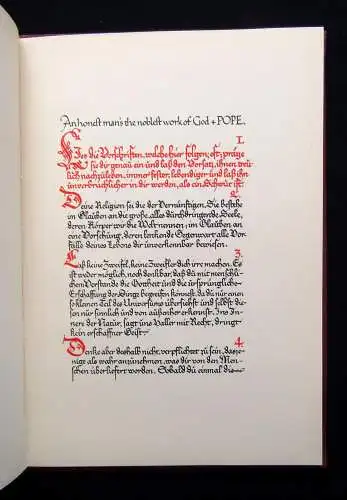 An honest man's the noblest work of God + POPE.
1.
Lies die Vorschriften, welche hier folgen, oft; präge
sie dir genau ein und laß den Vorsatz, ihnen treu-
lich nachzuleben, immer fester, lebendiger und laß ihn
unverbrüchlicher in dir werden, als ein Schwur ist.
2.
Deine Religion sei die der Vernünftigen. Sie bestehe
in Glauben an die große, alles durchdringende Seele,
deren Körper wir die Welt nennen; im Glauben an
eine Vorsehung, deren lenkende Gegenwart alle Vor-
fälle deines Lebens dir unverkennbar beweisen.
3.
Laß keine Zweifel, keine Zweifler dich irre machen. Es
ist weder möglich, noch denkbar, daß du mit menschli-
chem Verstande die Gottheit und die ursprüngliche
Erschaffung der Dinge begreifen könntest, da du nur einen
kleinen Teil des Universums übersiehst und selbst die-
sen nur sinnlich und von außen her erkennst. Ins In-
nere der Natur, sagt uns Haller mit Recht, dringt
kein erschaffner Geist.
4.
Denke aber deshalb nicht, verpflichtet zu sein, dasje-
nige als wahr anzunehmen, was dir von den Men-
schen überliefert worden. Sobald du einmal die-